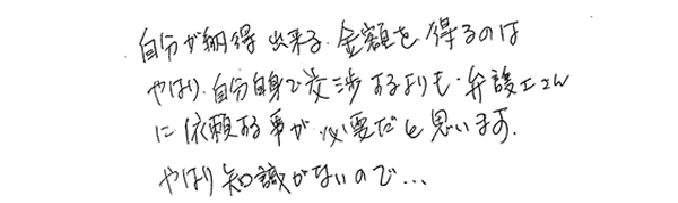 自分が納得出来る金額を得るのは
やはり、自分自身で交渉するよりも、弁護士さん
に依頼する事が必要だと思います。
やはり知識がないので…